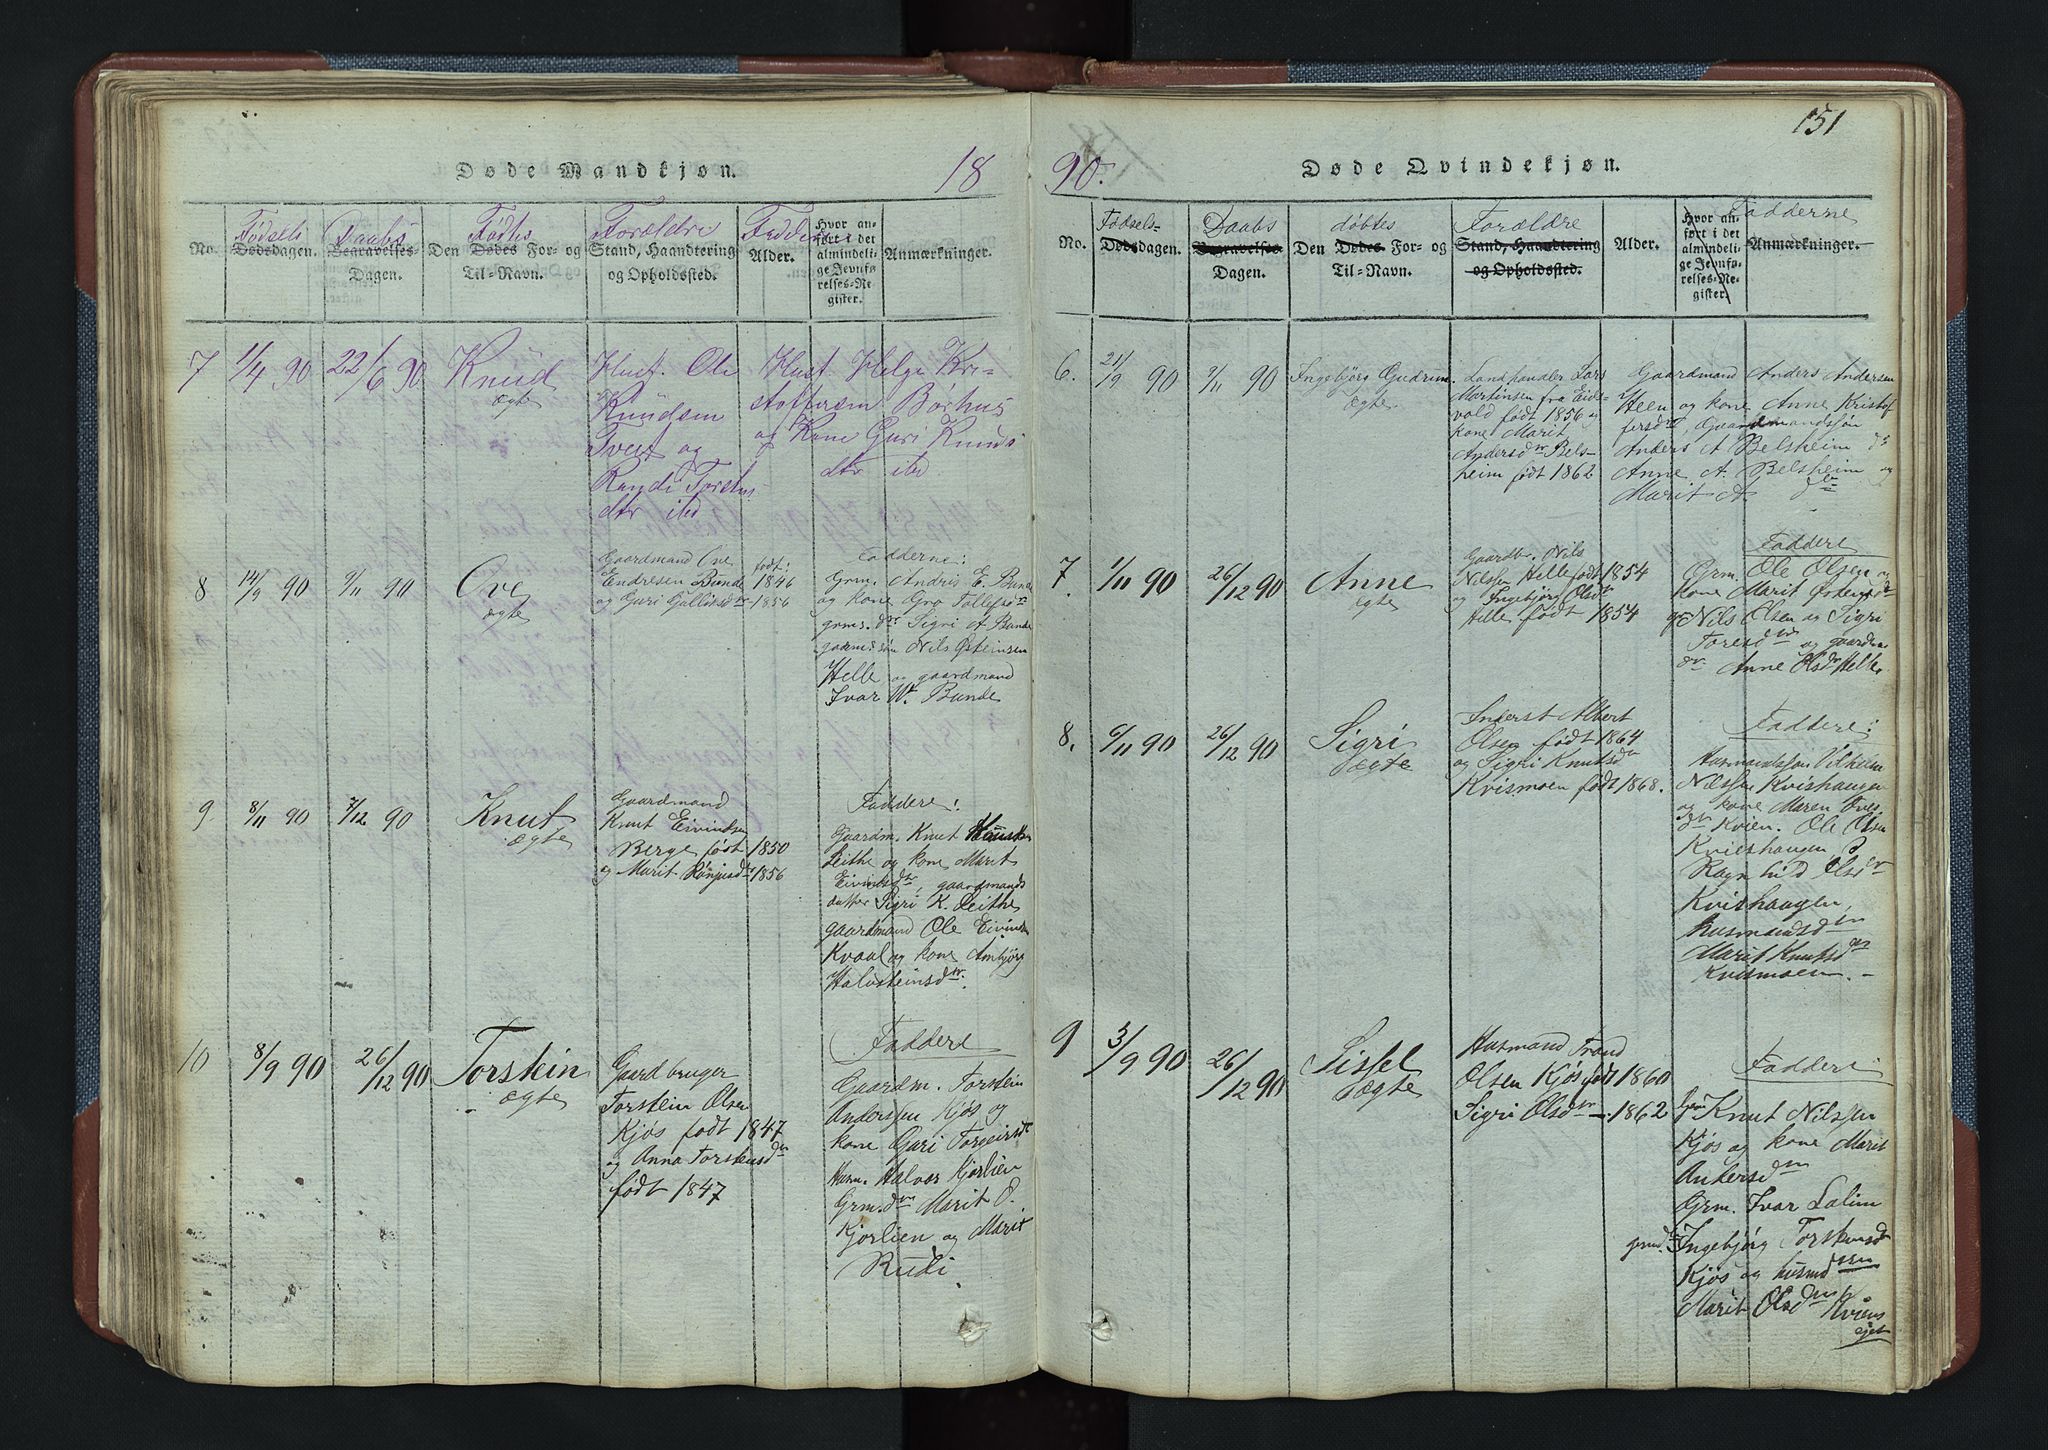 151
Døde Mandkjøn. 18
No.
Fødsels
Dødsdagen.
Daabs
Begravelses-
Dagen.
Fødtes
Den Dødes For- og
Til-Navn.
Forældre
Stand, Haandtering
og Opholdssted.
Alder.
Hvor an-
ført i det
almindeli-
ge Jevnfø-
relses-Re-
gister.
Anmærkninger.
7 1/4 90 22/6 90 Knud
ægte
Hust. Ole
Knudsen
Tveit og
Randi Torstens-
dtr ibd
Hust Helge Kri-
stoffersen Børhus
og Kone Guri Knuds
dtr ibd
8 14/9 90 9/11 90 Ove
ægte
Gaardmand Ove født:
Endresen Bunde 1846
og Guri Gulliksdtr 1856
Fadderne:
Grm. Andris E. Bunde
og kone Gro Tollefsdtr
grms. dtr Sigri A Bunde
gaarm:søn Nils Østensen
Helle og gaardmand
Ivar W. Bunde
9 8/11 90 7/12 90 Knut
ægte
Gaardmand
Knut Eivindsen
Berge født 1850
og Marit 1856
Faddere:
Gaardm. Knut
Leithe og kone Marit
Eivindsdtr, gaardmands
datter Sigri K. Leithe
gaardmand Ole Eivinds
Kvaal og kone Ambjørg
Halvsteinsdtr.
10 8/9 90 26/12 90 Torstein
ægte
Gaardbruger
Torstein Olsen
Kjøs født 1847
og Anna Torstensdtr
født 1847
Faddere
Gaardm. Torstein
Anderssen Kjøs og
kone Guri Torgeirsdt
Husm. Halvor Kjørlien
Grm.dtr Marit O.
Kjørlien og Marit
Rudi
90. Døde Qvindekjøn.
No.
Fødsels-
Dødsdagen.
Daabs
Begravelses-
Dagen.
døbtes
Den Dødes For- og
Til-Navn.
Forældre
Stand, Haandtering
og Opholdssted.
Alder.
Hvor an-
ført i det
almindeli-
ge Jevnfø-
relses-Re-
gister.
Fadderne
Anmærkninger.
6. 21/9 90 9/11 90 Ingebjørg Gudrun
ægte
Landhandler Lars
Martinsen fra Eids-
vold født 1856 og
kone Marit
Andersdtr Bels-
heim født 1862
Gaardmand Anders Andersen
Heen og kone Anne Kristof
fersdtr, Gaardmandssøn
Anders A Belsheim
Anne A. Belsheim og
Marit A do
7. 1/11 90 26/12 90 Anne
ægte
Gaardbr. Nils
Nilssen Helle født 1854
og Ingebjørg Olsdtr
Helle født 1854
Faddere
Grm. Ole Olsen og
kone Marit
Nils Olsen og Sigri
Toresdtr og gaardm
dtr Anne Olsdtr Helle.
8. 6/11 90 26/12 90 Sigri
ægte
Inderst Albert
Olsen født 1864
og Sigri Knutsdtr
Kvismoen født 1868.
Faddere:
Husmandssøn Vilhelm
Nilssen Kvishaugen
og kone Maren
dtr Kvien. Ole Olsen
Kvishaugen
Ragnhild Olsdtr
Kvishaugen,
husmandsdtr
Marit Knutsdtr
Kvismoen.
9 3/9 90 26/12 90 Sissel
ægte
Husmand Trond
Olsen Kjøs født 1860
Sigri Olsdtr — 1862
Faddere:
Knut Nilssen
Kjøs og kone Marit
Andersdtr
Grm. Ivar Lalim
grmd. Ingebjørg Torstensdtr
Kjøs og husmd
Marit Olsdtr Kviens
ejet